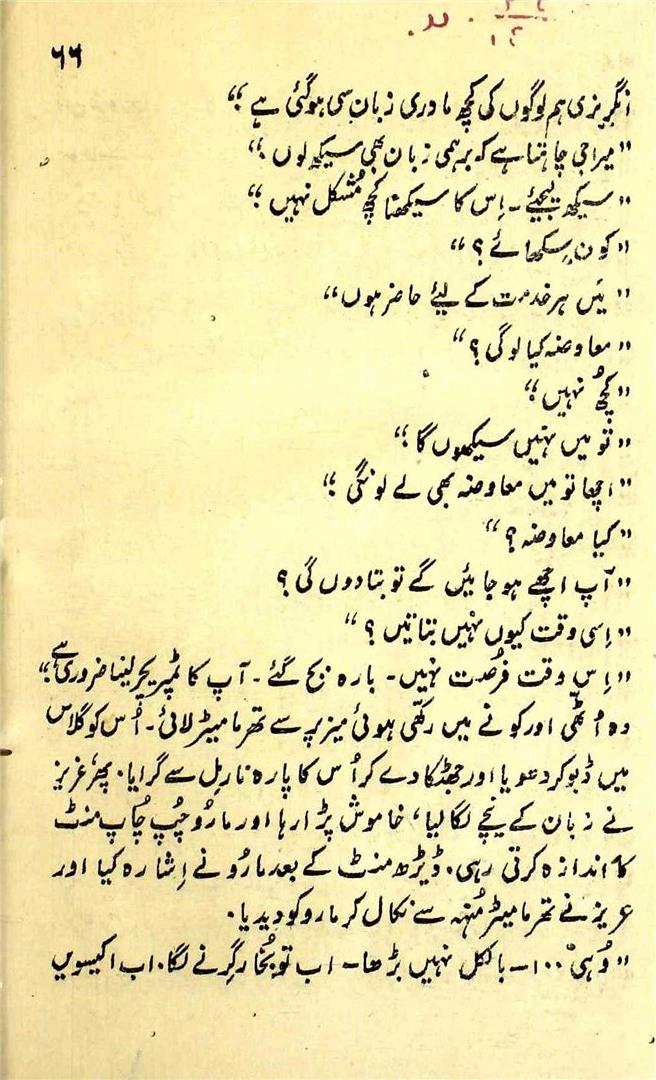 ۶۶
انگریزی ہم لوگوں کی کچھ مادری زبان سی ہوگئی ہے "
" میرا جی چاہتا ہے کہ برہمی زبان بھی سیکھ لوں "
" سیکھ لیجئے ۔ اِس کا سیکھنا کچھ مُشکل نہیں "
" کون سِکھائے ؟ "
" میَں ہر خدمت کے لیئے حاضر ہوں "
" معاوضہ کیا لوگی ؟ "
" کچھُ نہیں "
" تو میں نہیں سیکھوں گا "
" اچھا تو میں معاوضہ بھی لے لونگی "
" کیا معاوضہ ؟ "
" آپ اچھے ہو جائیں گے تو بتا دوں گی ؟
" اِسی وقت کیوں نہیں بتاتیں ؟ "
" اِس وقت فُرصت نہیں ۔ بارہ بج گئے ۔ آپ کا ٹمپریچر لینا ضروری ہے "
وہ اُٹھّی اور کونے میں رکھّی ہوئی میز پر سے تھرمامیٹر لائی ۔ اُس کو گلاس
میں ڈبو کر دھویا اور جھٹکا دے کر اُس کا پارہ نارمل سے گرایا ۔ پھر عزیز
نے زبان کے نیچے لگا لیا ، خاموش پڑا رہا اور مارُو چُپ چاپ منٹ
کا اندازہ کرتی رہی ۔ ڈیڑھ منٹ کے بعد مارُو نے اِشارہ کیا اور
عزیز نے تھرمامیٹر مُنہ سے نکال کر مارو کو دیدیا ۔
" وُہی ۱۰۰ ۔ بالکل نہیں بڑھا ۔ اب تو بُخار گرِنے لگا ۔ اب اکیسویں